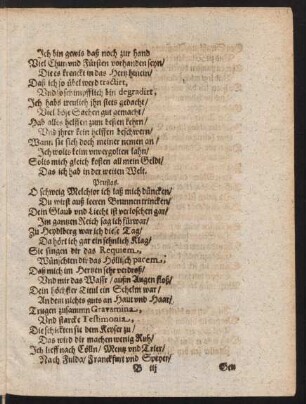 Ich bin gewis daß noch zur hand
Viel Chur und Fürsten vorhanden seyn/
Die es krenckt in das Hertz hinein/
Daß ich so übel werd tractirt,
Und so schimpfflich bin degradirt,
Ich habs treulich ihn stets gedacht/
Viel böse Sachen gut gemacht/
Hab alles helffen zum besten kehrn/
Und ihrer kein helffen beschwern/
Wann sie sich doch meiner nemen an/
Ich wolts keim unvergolten lahn/
Solts mich gleich kosten all mein Geldt/
Das ich hab in der weiten Welt.
O schweig Melchior ich laß mich düncken/
Du wirst auß leeren Brunnen trincken/
Dein Glaub und Liecht ist verloschen gar/
Im gantzen Reich sag ich fürwar/
Zu Heydlberg war ich diese Tag/
Da hört ich gar ein sehnlich Klag/
Sie singen dir das Requiem,
Wünschten dir das Höllisch pacem,
Daß mich im Hertzen sehr verdroß/
Und mir das Wasser/ außn Augen floß/
Dein höchster Titul ein Schelm war/
An dem nichts guts an Haut und Haar/
Trugen zusamen Gravamina,
Und starcke Testimonia,
Die schickten sie dem Keyser zu/
Das wird dir machen wenig Ruh/
Ich lieff nach Cölln/ Mentz und Trier/
Nach Fulda/ Franckfurt und Speyer/
B iij